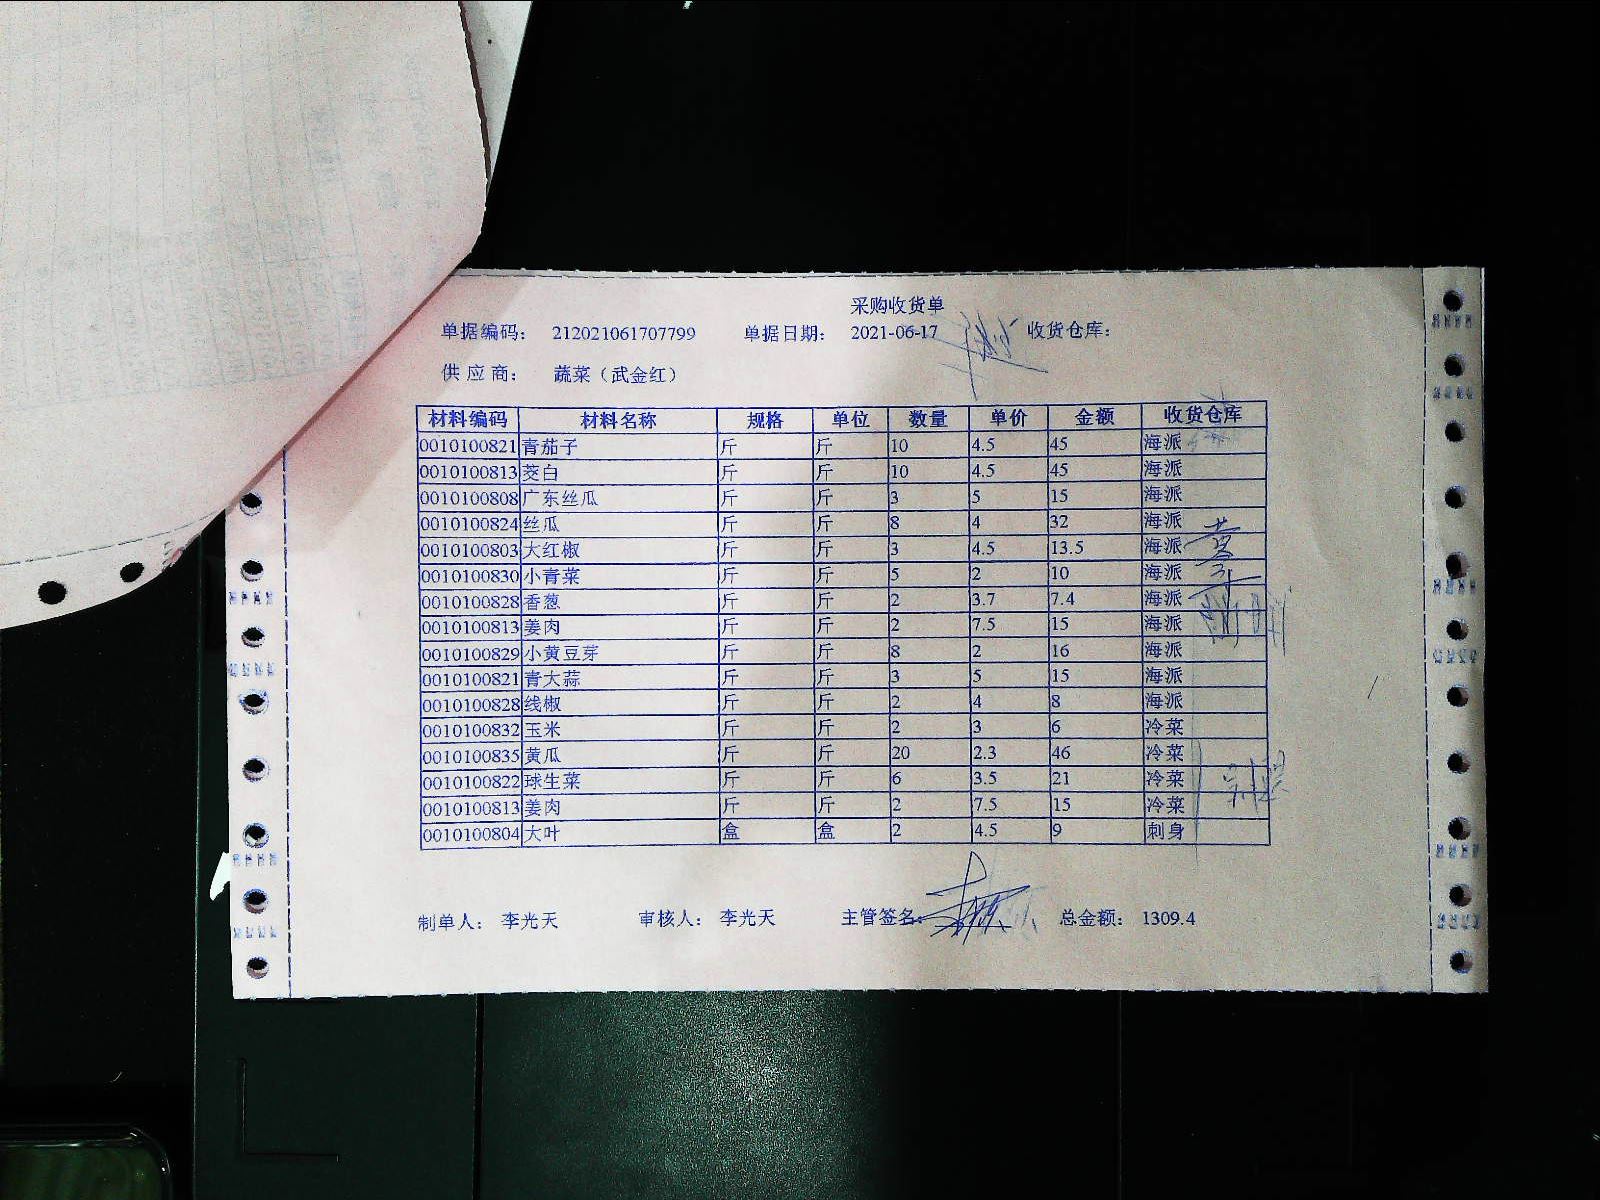 采购收货单
单据编码： 212021061707799 单据日期： 2021-06-17 收货仓库：
供应商： 蔬菜（武金红）
材料编码 材料名称 规格 单位 数量 单价 金额 收货仓库
0010100821 青茄子 斤 斤 10 4.5 45 海派
0010100813 茭白 斤 斤 10 4.5 45 海派
0010100808 广东丝瓜 斤 斤 3 5 15 海派
0010100824 丝瓜 斤 斤 8 4 32 海派
0010100803 大红椒 斤 斤 3 4.5 13.5 海派
0010100830 小青菜 斤 斤 5 2 10 海派
0010100828 香葱 斤 斤 2 3.7 7.4 海派
0010100813 姜肉 斤 斤 2 7.5 15 海派
0010100829 小黄豆芽 斤 斤 8 2 16 海派
0010100821 青大蒜 斤 斤 3 5 15 海派
0010100828 线椒 斤 斤 2 4 8 海派
0010100832 玉米 斤 斤 2 3 6 冷菜
0010100835 黄瓜 斤 斤 20 2.3 46 冷菜
0010100822 球生菜 斤 斤 6 3.5 21 冷菜
0010100813 姜肉 斤 斤 2 7.5 15 冷菜
0010100804 大叶 盒 盒 2 4.5 9 刺身
制单人： 李光天 审核人： 李光天 主管签名： 总金额： 1309.4